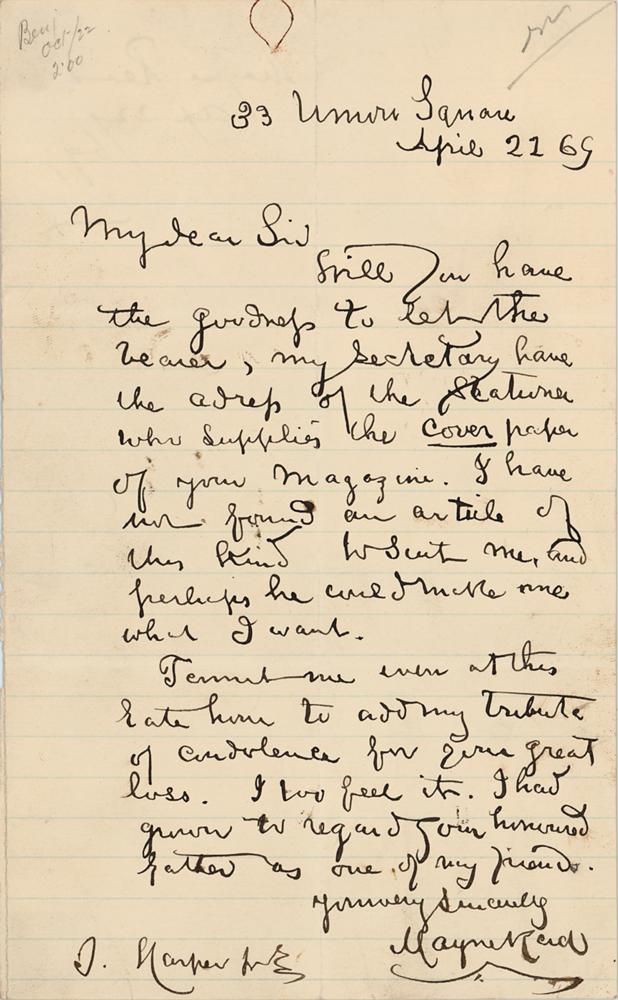 Ben
Oct/22
2.00
33 Union Square
April 21 69
My dear Sir
Will you have
the goodness to let the
bearer, my Secretary have
the adress of the Stationer
who supplies the cover paper
of your Magazine. I have
not found an article of
this kind to suit me, and
perhaps he could make me
what I want.
Permit me even at this
late hour to add my tribute
of condolence for your great
loss. I too feel it. I had
grown to regard your honoured
father as one of my friends.
Yours very sincerely
Mayne Reid
J. Harper Jr E